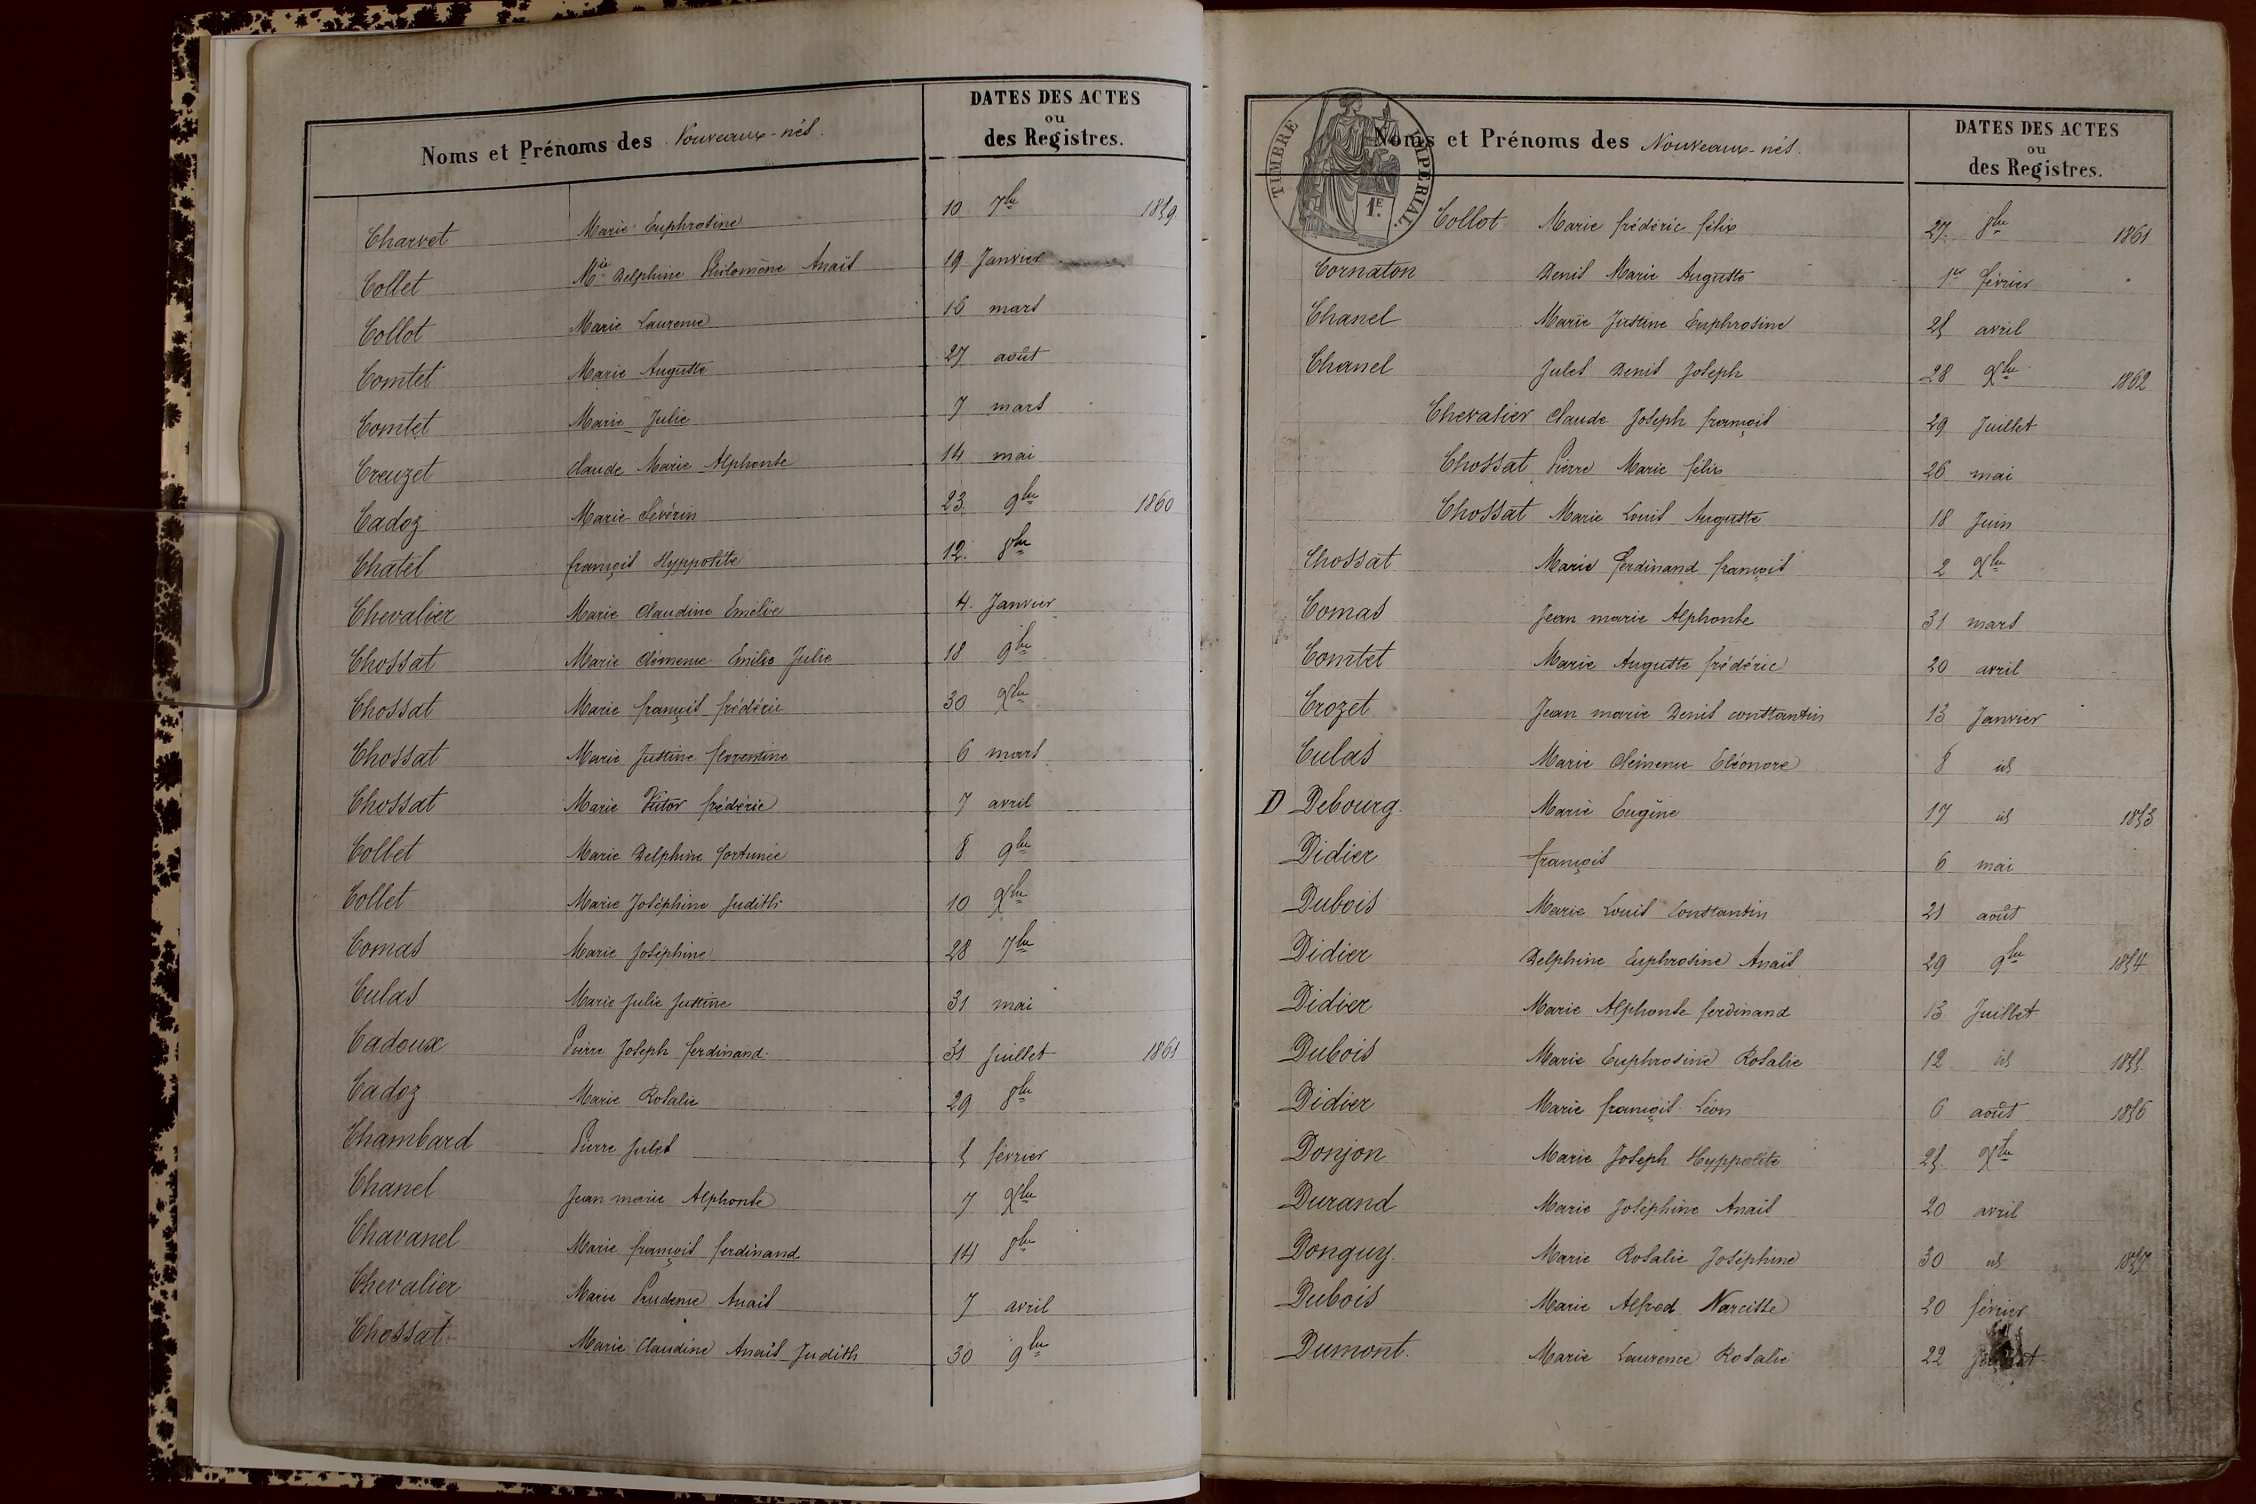 Noms et Prénoms des Nouveaux-nés.
DATES DES ACTES
ou
des Registres.
Charvet Marie Euphrosine 10 7bre 1859
Collet Mie Delphine Philomène Anaïs 19 Janvier
Collot Marie Laurence 16 mars
Comtet Marie Auguste 27 août
Comtet Marie Julie 7 mars
Creuzet Claude Marie Alphonse 14 mai
Cadoz Marie Sévérin 23 9bre 1860
Chatel françois Hyppolite 12 8bre
Chevalier Marie Claudine Emélie 4 Janvier
Chossat Marie Clémence Emilie Julie 18 9bre
Chossat Marie françois frédéric 30 Xbre
Chossat Marie Justine florentine 6 mars
Chossat Marie Victor frédéric 7 avril
Collet Marie Delphine fortunée 8 9bre
Collet Marie Joséphine Judith 10 Xbre
Comas Marie Joséphine 28 7bre
Culas Marie Julie Justine 31 mai
Cadoux Pierre Joseph ferdinand 31 Juillet 1861
Cadoz Marie Rosalie 29 8bre
Chambard Pierre Jules 5 février
Chanel Jean marie Alphonse 7 Xbre
Chavanel Marie françois ferdinand 14 8bre
Chevalier Marie Prudence Anaïs 7 avril
Chossat Marie Claudine Anaïs Judith 30 9bre
TIMBRE IMPÉRIAL.
1E.
Noms et Prénoms des Nouveaux-nés.
DATES DES ACTES
ou
des Registres.
Collot Marie frédéric félix 27 8bre 1861
Cornaton Denis Marie Auguste 1er février
Chanel Marie Justine Euphrosine 25 avril
Chanel Jules Denis Joseph 28 Xbre 1862
Chevalier Claude Joseph françois 29 Juillet
Chossat Pierre Marie félix 26 mai
Chossat Marie Louis Auguste 18 Juin
Chossat Marie ferdinand françois 2 Xbre
Comas Jean marie Alphonse 31 mars
Comtet Marie Auguste frédéric 20 avril
Crozet Jean marie Denis constantin 13 Janvier
Culas Marie Clémence Eléonore 8 id
D Debourg Marie Eugène 17 id 1853
Didier françois 6 mai
Dubois Marie Louis Constantin 21 août
Didier Delphine Euphrosine Anaïs 29 9bre 1854
Didier Marie Alphonse ferdinand 13 Juillet
Dubois Marie Euphrosine Rosalie 12 id 1855
Didier Marie françois Léon 6 août 1856
Donjon Marie Joseph Hyppolite 25 Xbre
Durand Marie Joséphine Anaïs 20 avril
Donguy Marie Rosalie Joséphine 30 id 1857
Dubois Marie Alfred Narcisse 20 février
Dumont Marie Laurence Rosalie 22